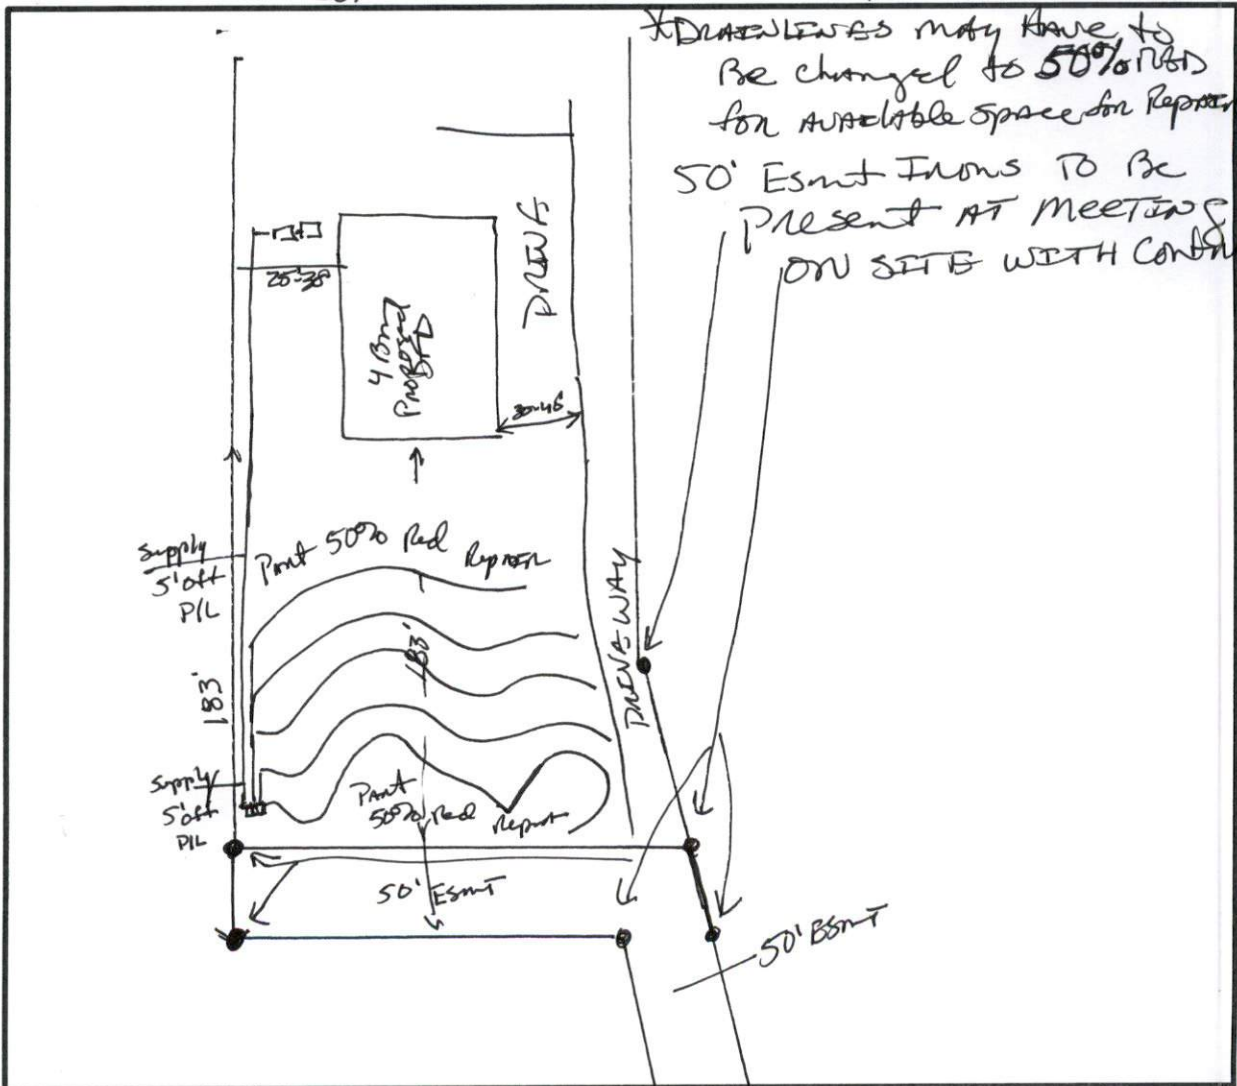 *DRAINLINES may Have to
Be changed to 50% RED
for AVAILABLE space for Repair
50' Esmt Irons TO Be
Present AT MEETING
ON SITE WITH Contr
DRIVE
25-38
4 Brm
Proposed
SFD
30-45
Supply
5' off
P/L
Part 50% Red Repair
183'
183'
DRIVEWAY
Supply
5' off
P/L
Part
50% Red Repair
50' Esmt
50' Esmt